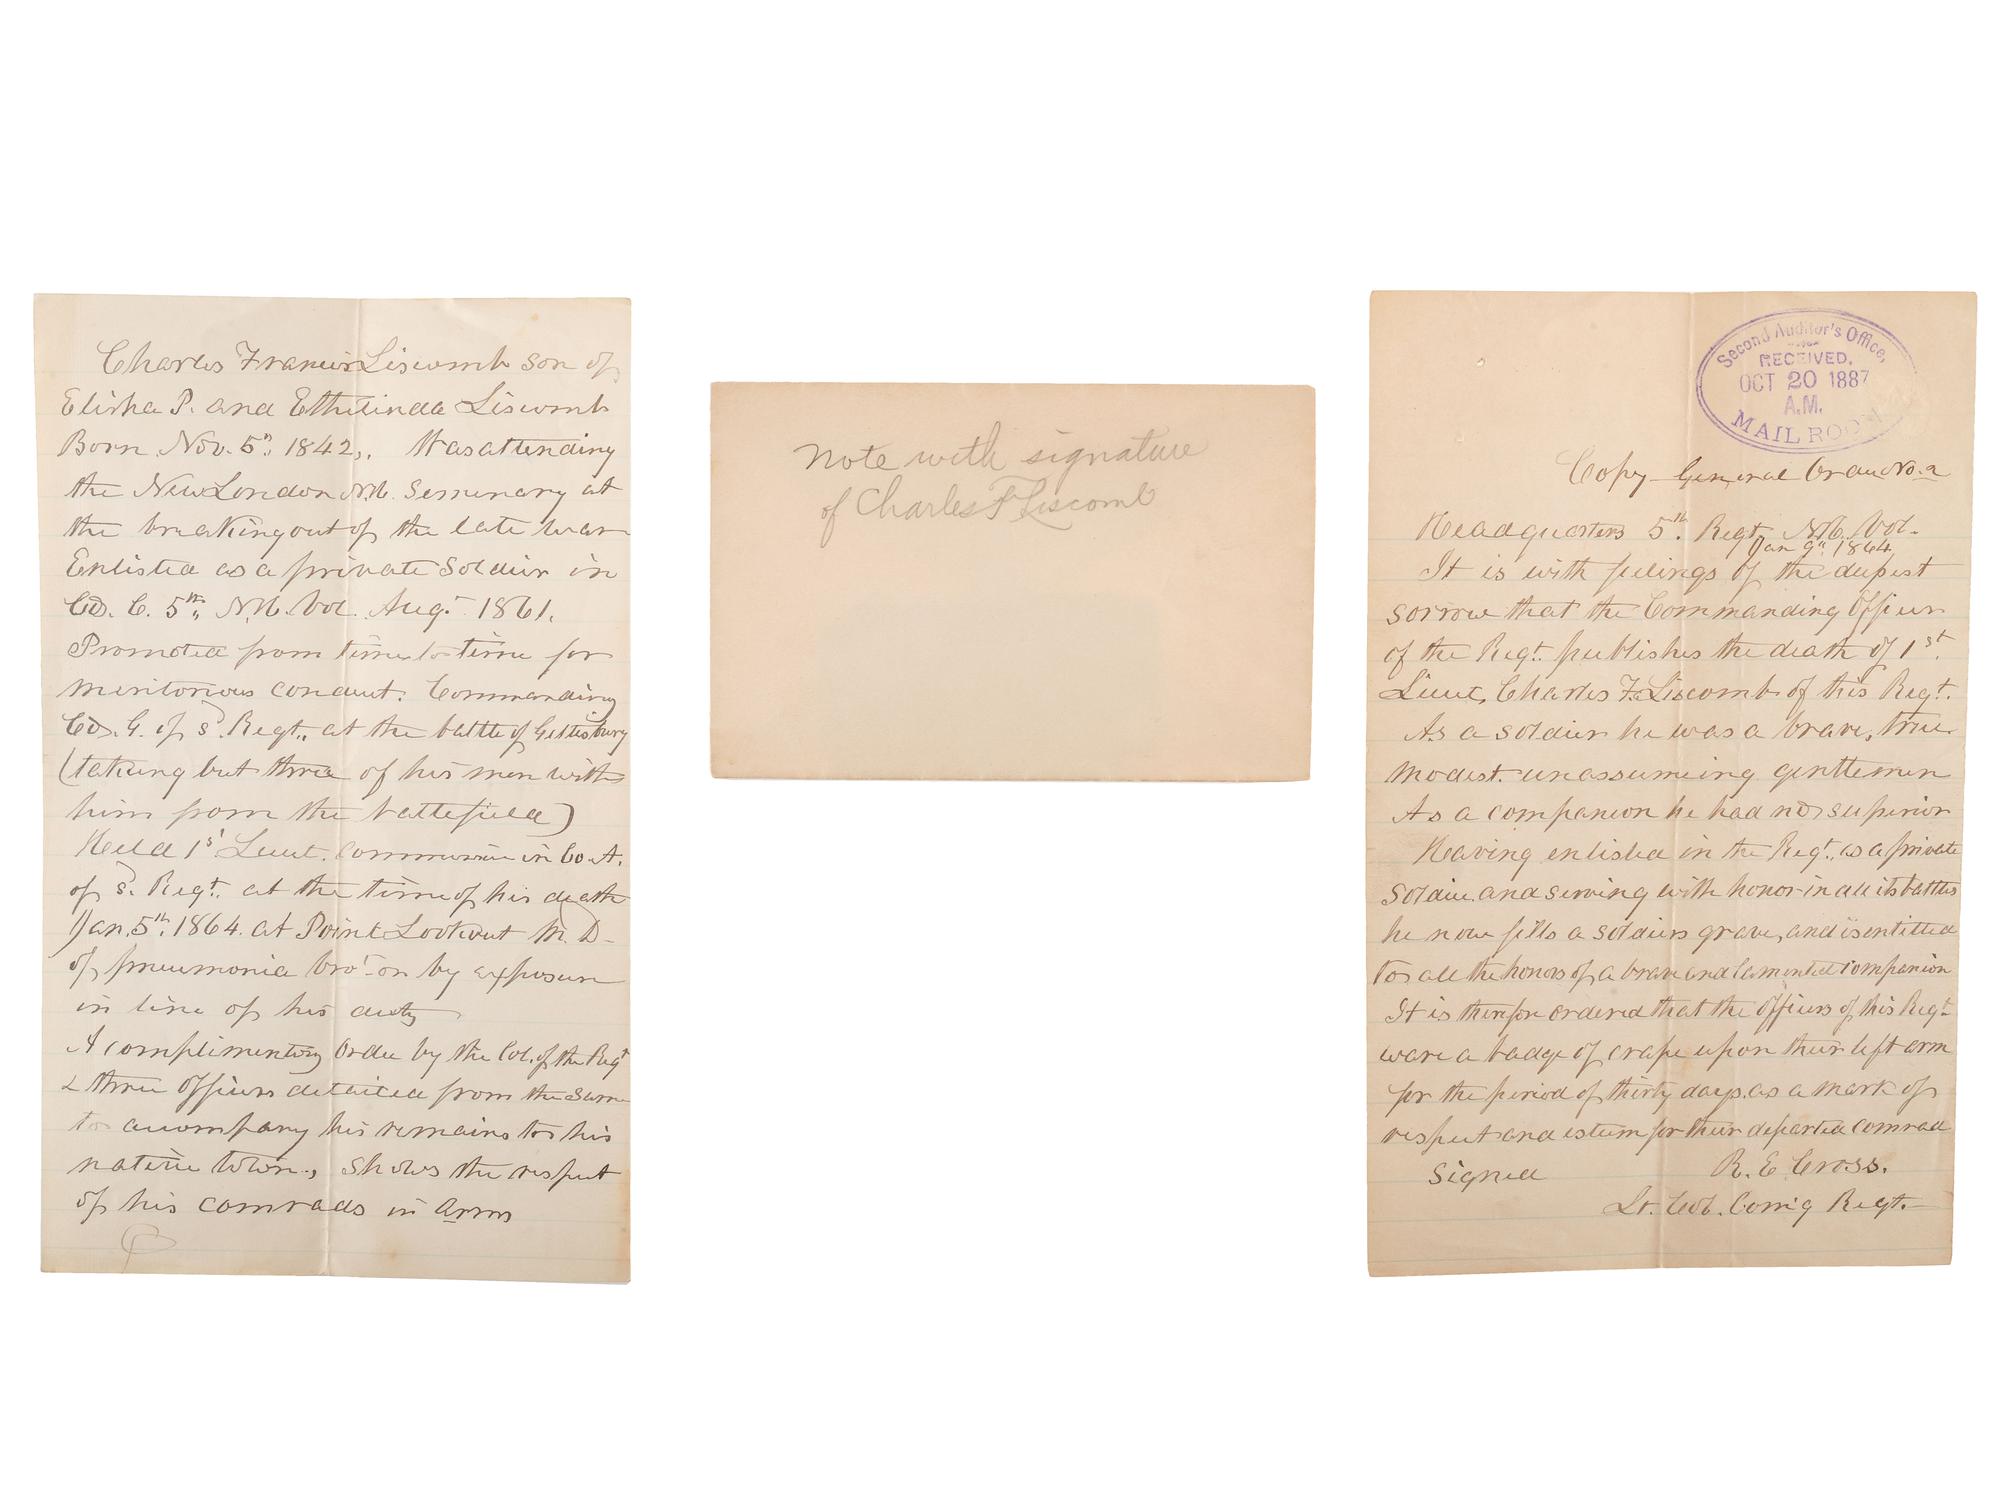 Charles Francis Liscomb son of
Elisha P. and Ethelinda Liscomb
Born Nov. 5th 1842,. Was attending
the New London N.H. Seminary at
the breaking out of the late war
Enlisted as a private Soldier in
Co. C. 5th N.H. Vol. Aug. 1861.
Promoted from time to time for
meritorious conduct. Commanding
Co. G. of s.d Regt., at the battle of Gettesburg
(taking but three of his men with
him from the battlefield)
Held 1st Lieut. Commission in Co A.
of s.d Regt. at the time of his death
Jan. 5th 1864. at Point Lookout M. D-
of pneumonia bro't on by exposure
in line of his duty
A complimentory Order by the Col. of the Regt
& three Officers detailed from the same
to accompany his remains to his
native town., shows the respect
of his comrads in Arms
Note with signature
of Charles F Liscomb
Second Auditor's Office,
RECEIVED.
OCT 20 1887
A.M.
MAIL ROOM
Copy General Order No. 2
Headquarters 5th. Regt. N.H. Vol.
Jan 9th 1864
It is with feelings of the deepest
sorrow that the Commanding Officer
of the Regt. publishes the death of 1st.
Lieut. Charles F. Liscomb of this Regt.
As a soldier he was a brave, true
modest. unassumeing gentlemen
As a companion he had no superior
Having enlisted in the Regt., as a private
soldier and serving with honor in all its battles
he now fills a soldiers grave, and is entitled
to all the honors of a brave and lamented companion
It is therefore ordered that the Officers of this Regt
ware a badge of crape upon their left arm
for the period of thirty days. as a mark of
respect and esteem for their departed comrad
Signed R. E. Cross.
Lt. Col. Com'g Regt.